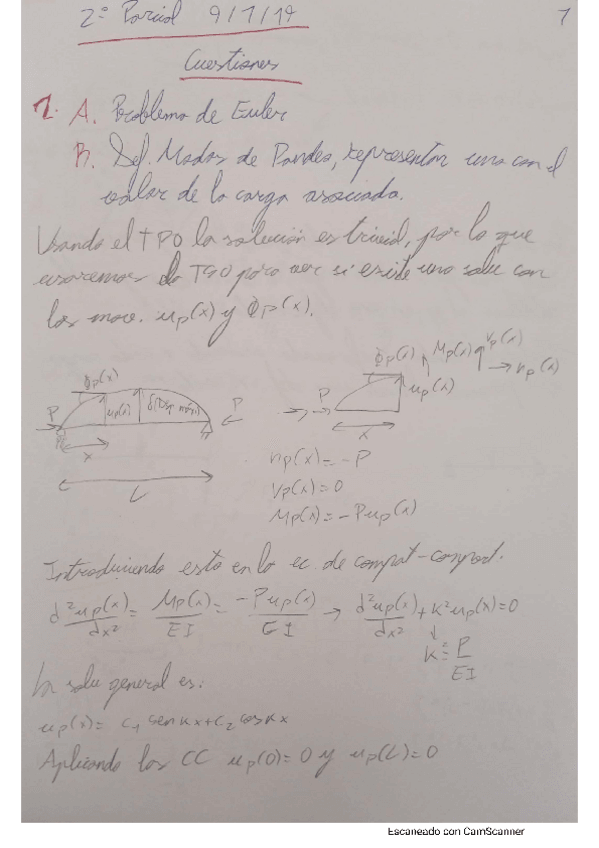 2º Parcial 9/7/19 1
Cuestiones
1. A. Problema de Euler
B. Def. Modos de Pandeo, representar uno con el
valor de la carga asociada.
Usando el TPO la solución es trivial, por lo que
usaremos la TSO para ver si existe una solu con
los mov. up(x) y ϕp(x).
ϕp(x) Mp(x) vp(x)
ϕp(x) up(x) np(x)
P up(x) P P
x x
L
np(x) = -P
vp(x) = 0
Mp(x) = -P up(x)
Introduciendo esto en la ec. de compat-comport.
d²up(x)/dx² = Mp(x)/EI = -P up(x)/EI → d²up(x)/dx² + k² up(x) = 0
k² = P/EI
La solu general es:
up(x) = C₁ sen kx + C₂ cos kx
Aplicando las CC up(0) = 0 y up(L) = 0
Escaneado con CamScanner